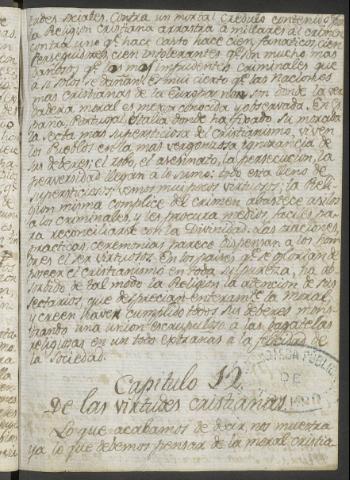 tudes sociales. Contra un mortal credulo contenido p.r
la Religion cristiana arrastra a millares al crimen
contra uno q.e hace casto hace cien fanaticos, cien
perseguidores, cien intolerantes q.e son mucho mas
dañosos q.e los mas imprudentes criminales que
a si solos se dañan. Es mui cierto q.e las Naciones
mas cristianas de la Europa no son donde la ver
dadera moral es mejor conocida y observada. En Es
paña, Portugal, Italia donde ha fixado su morada
la secta mas supersticiosa del cristianismo, viven
los Pueblos en la mas vergonzosa ignorancia de
sus deberes; el robo, el asesinato, la persecucion, la
perversidad llegan a lo sumo: todo esta lleno de
supersticiosos; vemos mui pocos virtuosos; la Reli-
gion misma complice del crimen abastece asilos
a los criminales y les procura medios faciles pa-
ra reconciliarse con la Divinidad. Las oraciones
practicas, ceremonias parece dispensan a los hom-
bres el ser virtuosos. En los paises q.e se glorian de
poseer el cristianismo en toda su pureza, ha ab-
sorbido de tal modo la Religion la atencion de sus
sectarios, que desprecian enteram.te la Moral,
y creen haver cumplido todos sus deberes mos-
trando una union escrupulosa a las bagatelas
religiosas en un todo extrañas a la felicidad de
la Sociedad.
Capitulo 12.
De las virtudes cristianas.
Lo que acabamos de decir, nos muestra
ya lo que debemos pensar de la moral cristia-
DE